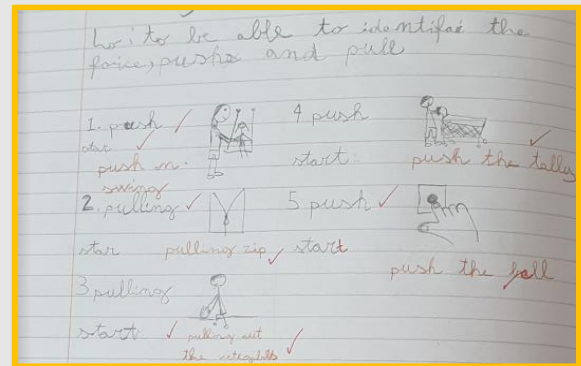 Lo: to be able to identifae the
force, push and pull
1. push
star
push n.
swing
2. pulling
star pulling zip
3 pulling
start
pulling out
the
4 push
start:
push the talley
5 push
start
push the